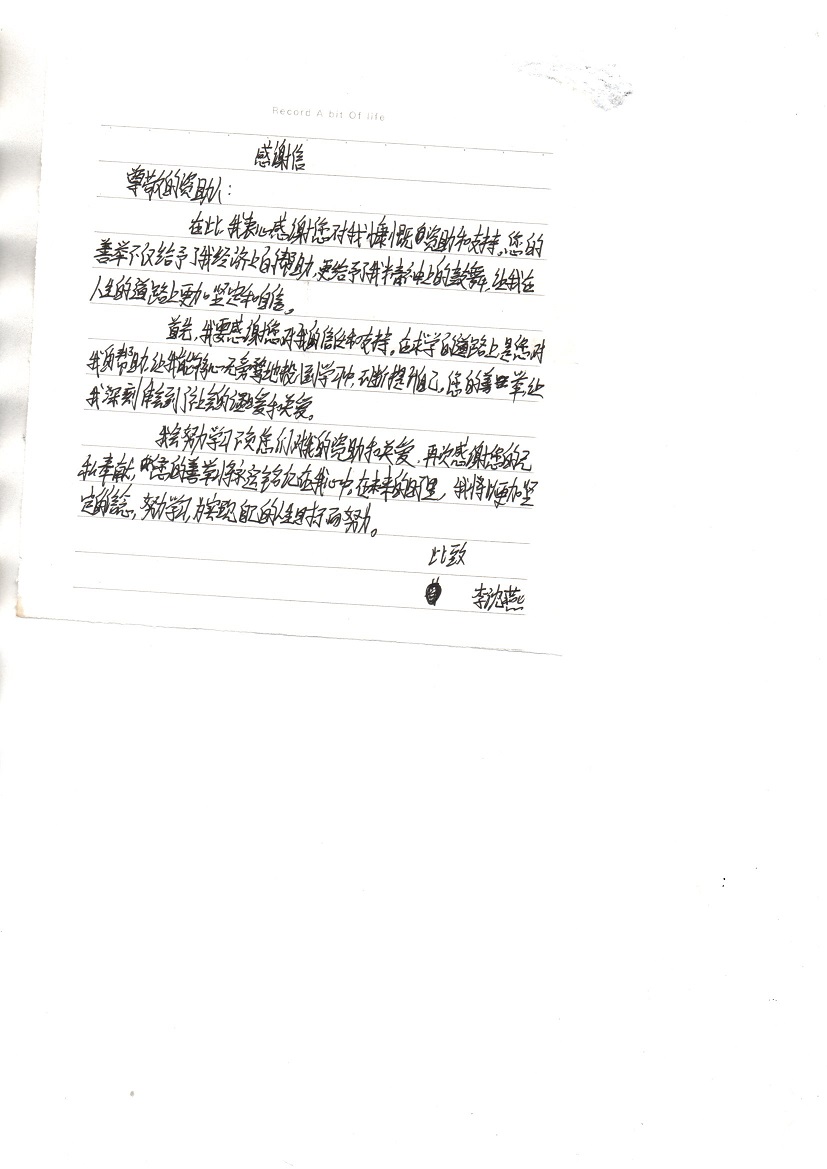 Record A bit Of life
感谢信
尊敬的资助人:
在此我衷心感谢您对我慷慨的资助和支持。您的
善举不仅给予了我经济上的帮助,更给予了我精神上的鼓舞,让我在
人生的道路上更加坚定和自信。
首先,我要感谢您对我的信任和支持。在求学的道路上是您对
我的帮助,让我能够心无旁骛地投入到学习中,不断提升自己,您的善举,让
我深刻体会到了社会的温暖和关爱。
我会努力学习不负您们对我的资助和关爱.再次感谢您的无
私奉献,您的善举将永远铭记在我心中,在未来的日子里,我将以更加坚
定的信念,努力学习,为实现自己的人生目标而努力。
此致
李沈燕